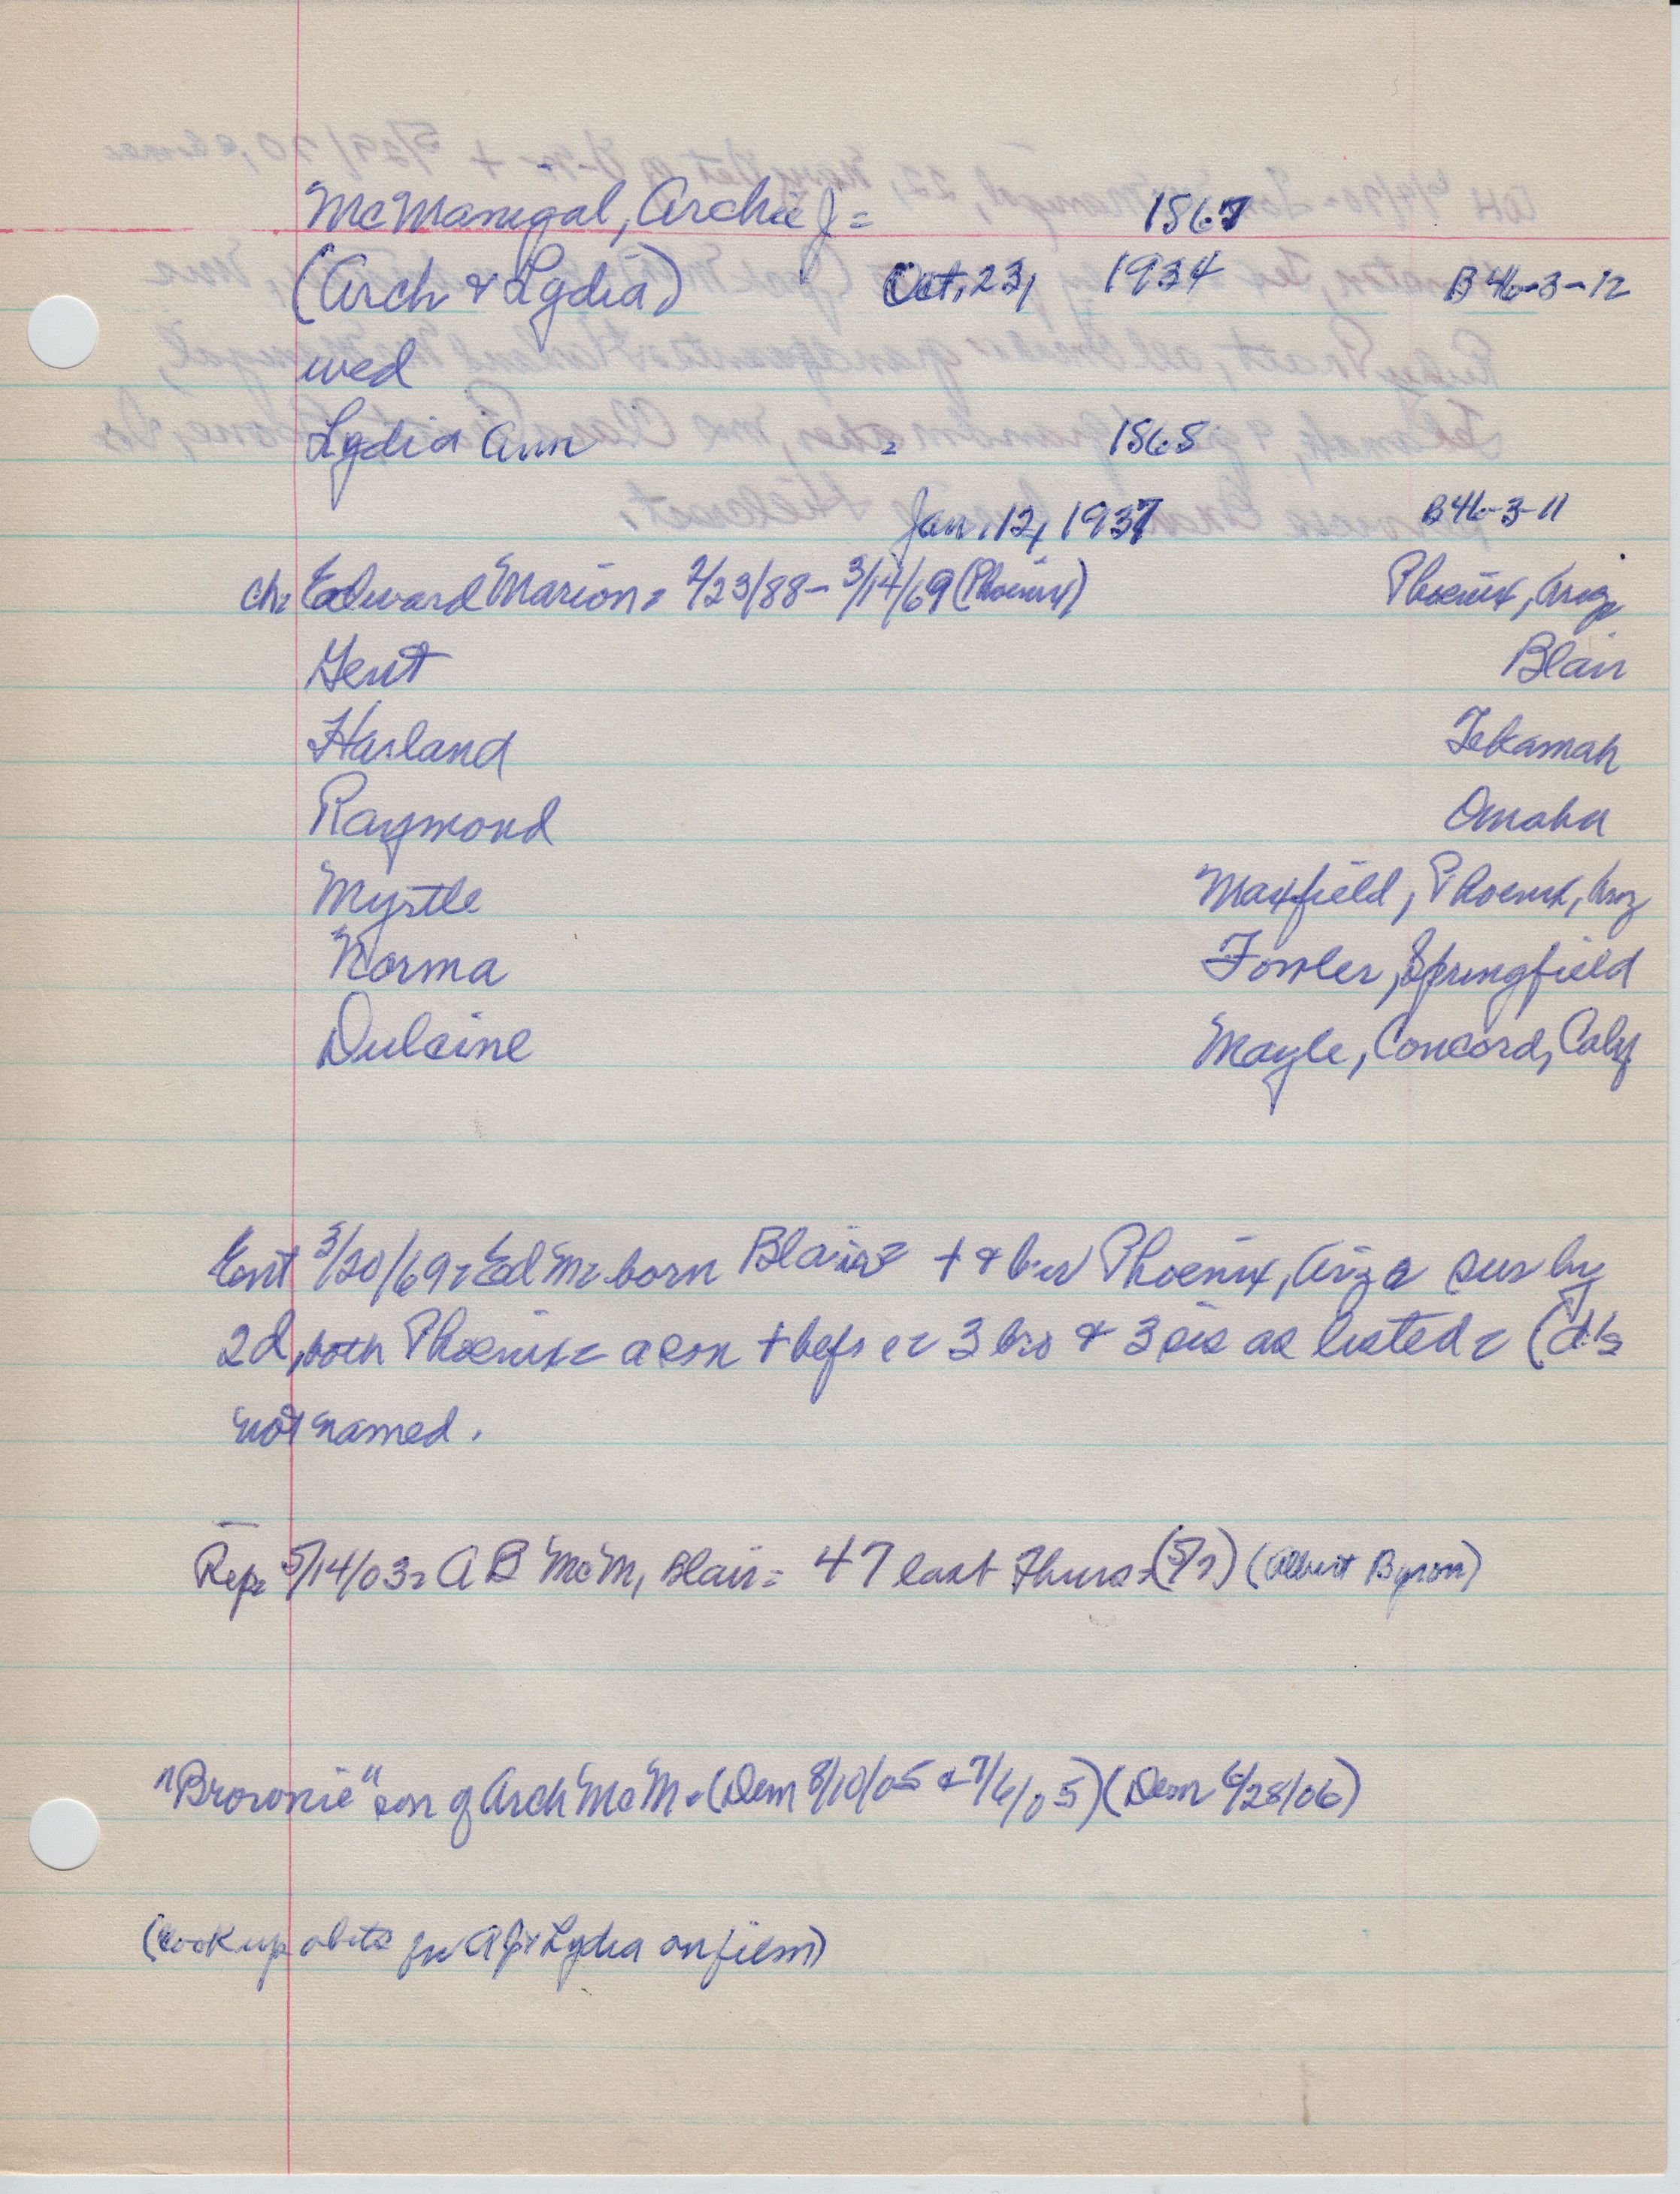 McManigal, Archie J = 1867
(Arch & Lydia) Oct. 23, 1934 B46-3-12
wed
Lydia Ann = 1868
Jan. 12, 1937 B46-3-11
ch= Edward Marion = 2/23/88 - 3/14/69 (Phoenix) Phoenix, Ariz
Gent Blair
Harland Tekamah
Raymond Omaha
Myrtle Maxfield, Phoenix, Ariz
Norma Fowler, Springfield
Dulcine Mayle, Concord, Calif
Ent 3/20/69 = Ed M = born Blair = + & bur Phoenix, Ariz = sur by
2d, both Phoenix = a son + bef = 3 bro & 3 sis as listed = (d's
not named.
Rep = 5/14/03 = A B McM, Blair = 47 last Thurs = (5/7) (Albert Byron)
"Brownie" son of Arch McM = (Dem 8/10/05 & 7/6/05) (Dem 6/28/06)
(look up obits for AJ & Lydia on film)